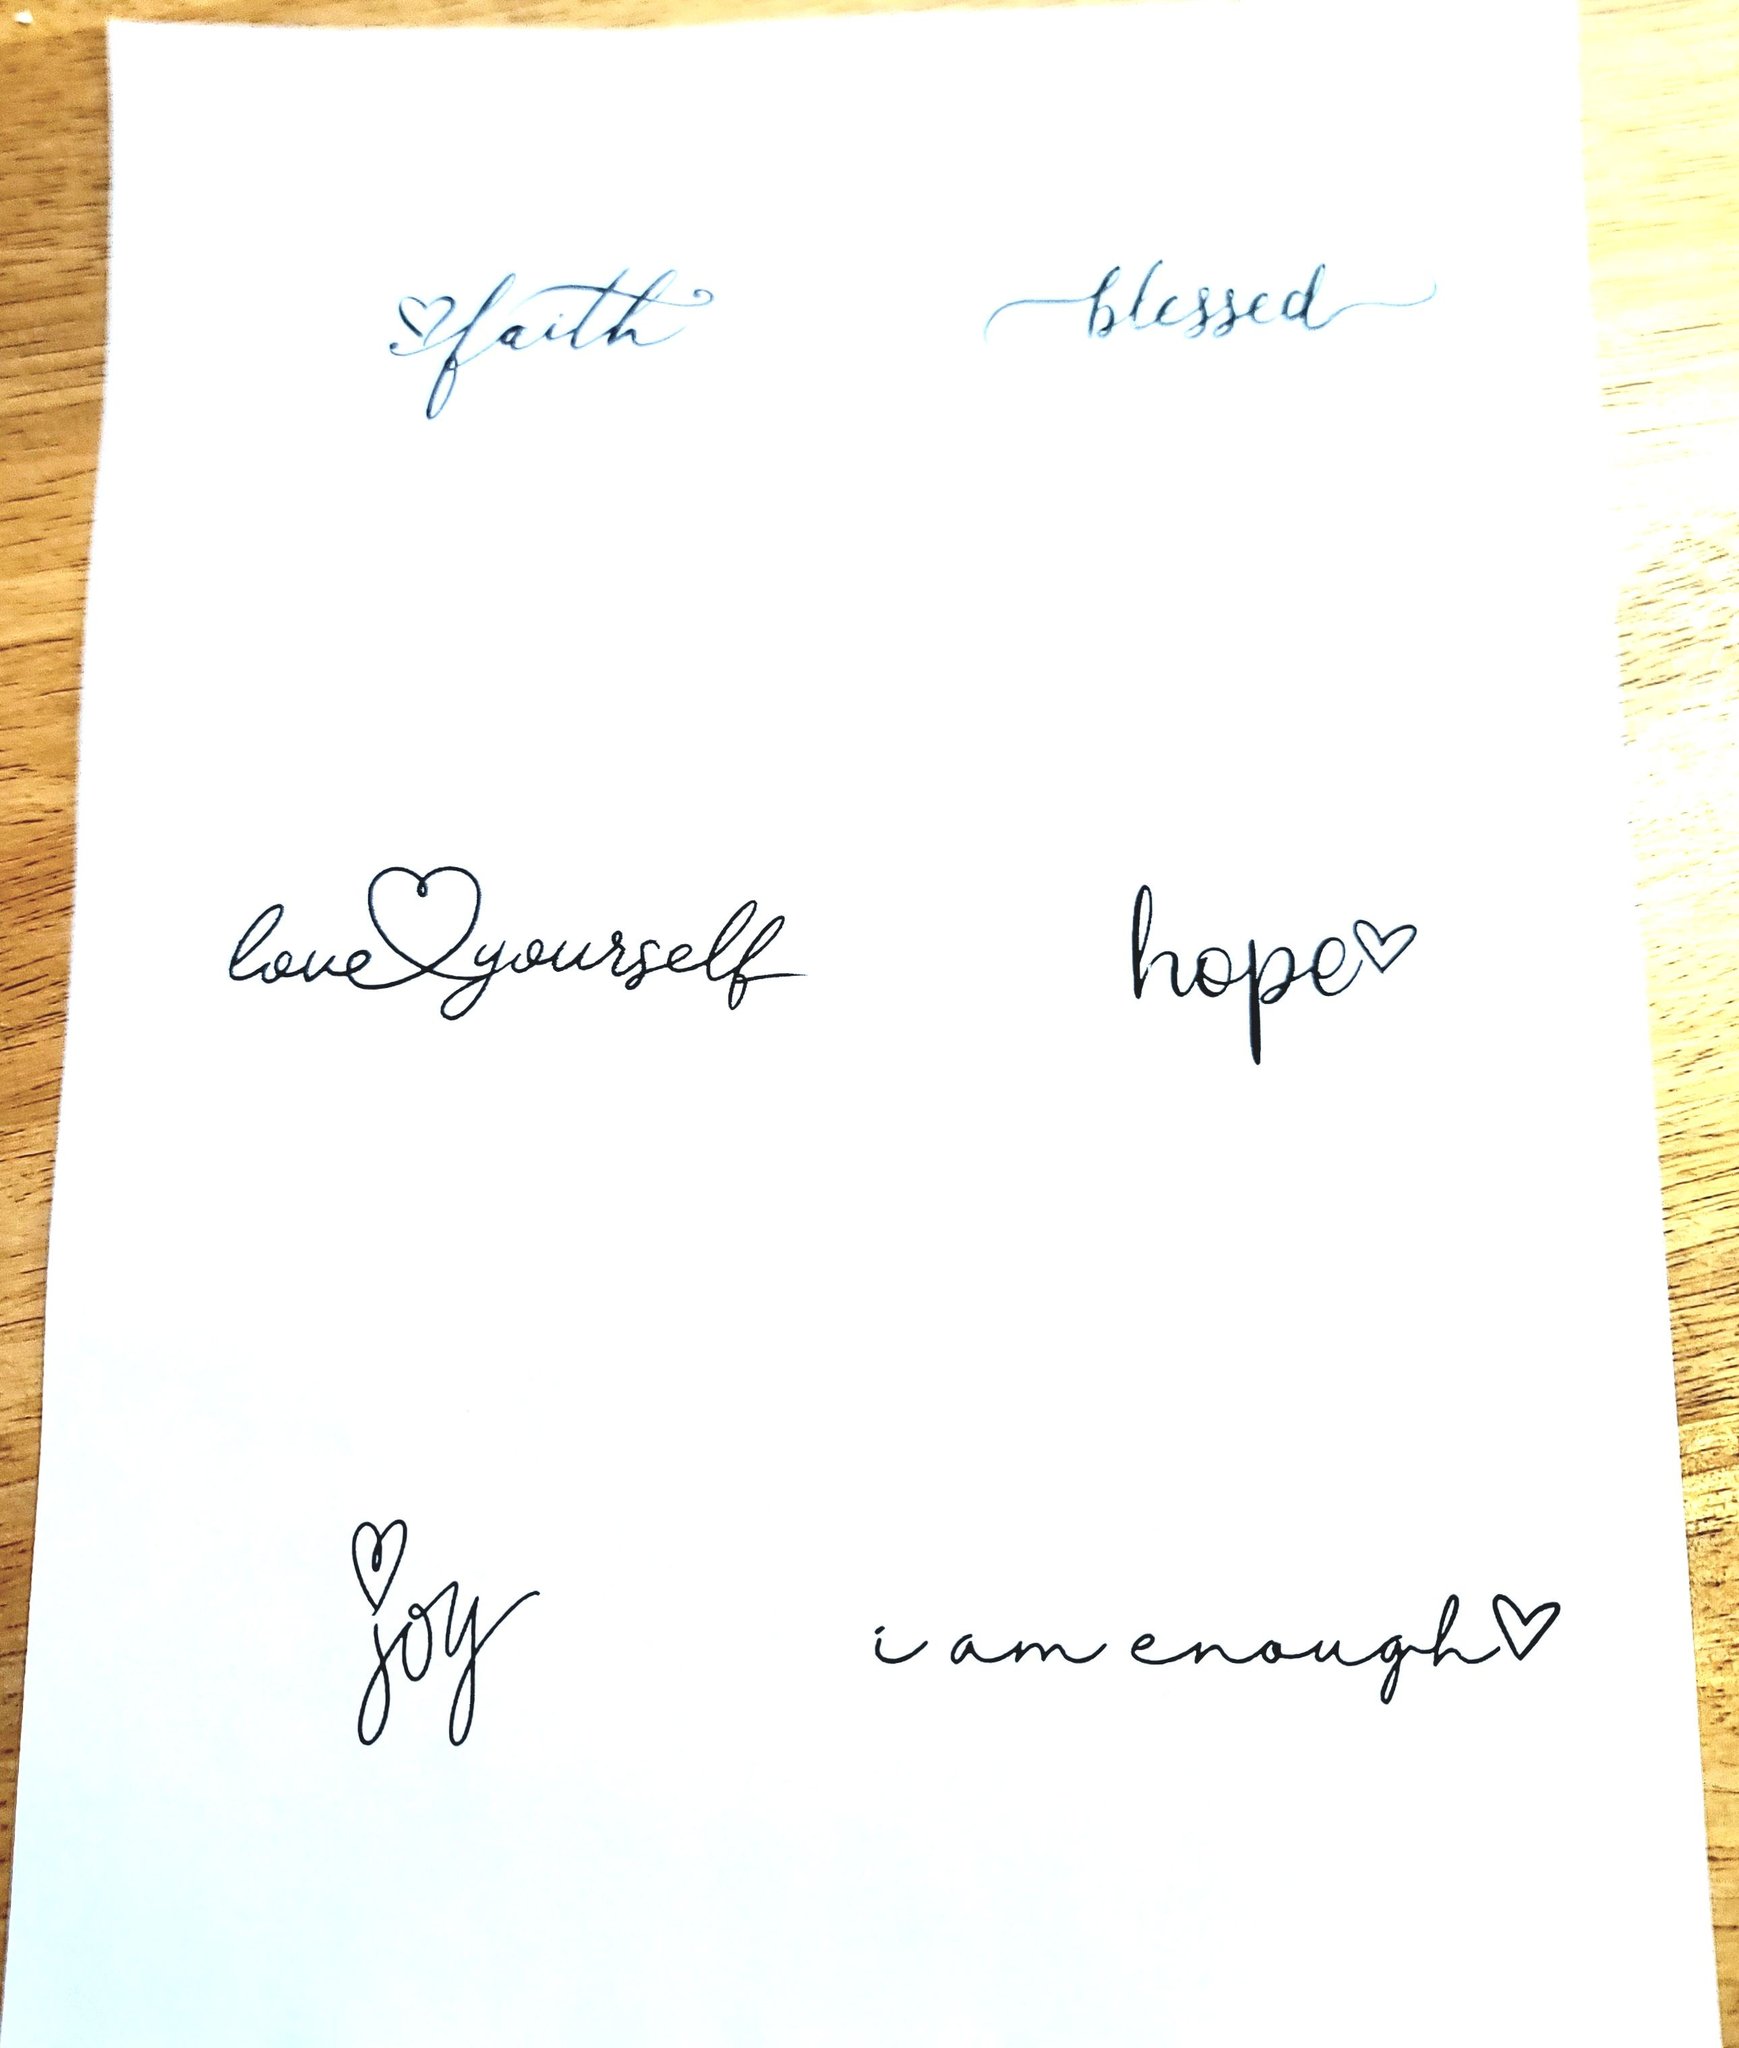 faith
blessed
love yourself
hope
joy
i am enough